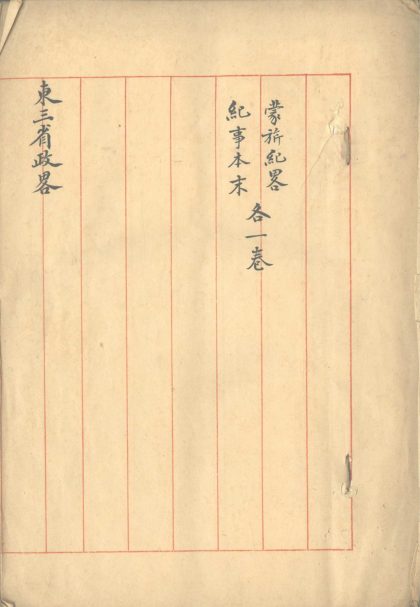 蒙旂紀畧
紀事本末
各一卷
東三省政畧